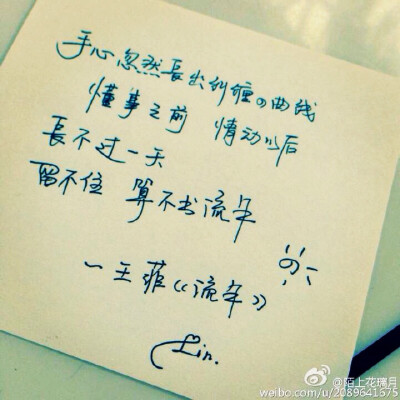 手心忽然長出糾纏の曲线
懂事之前 情动以后
長不过一天
留不住 算不出流年
—王菲《流年》
Lin.
@陌上花璃月
weibo.com/u/2089641575